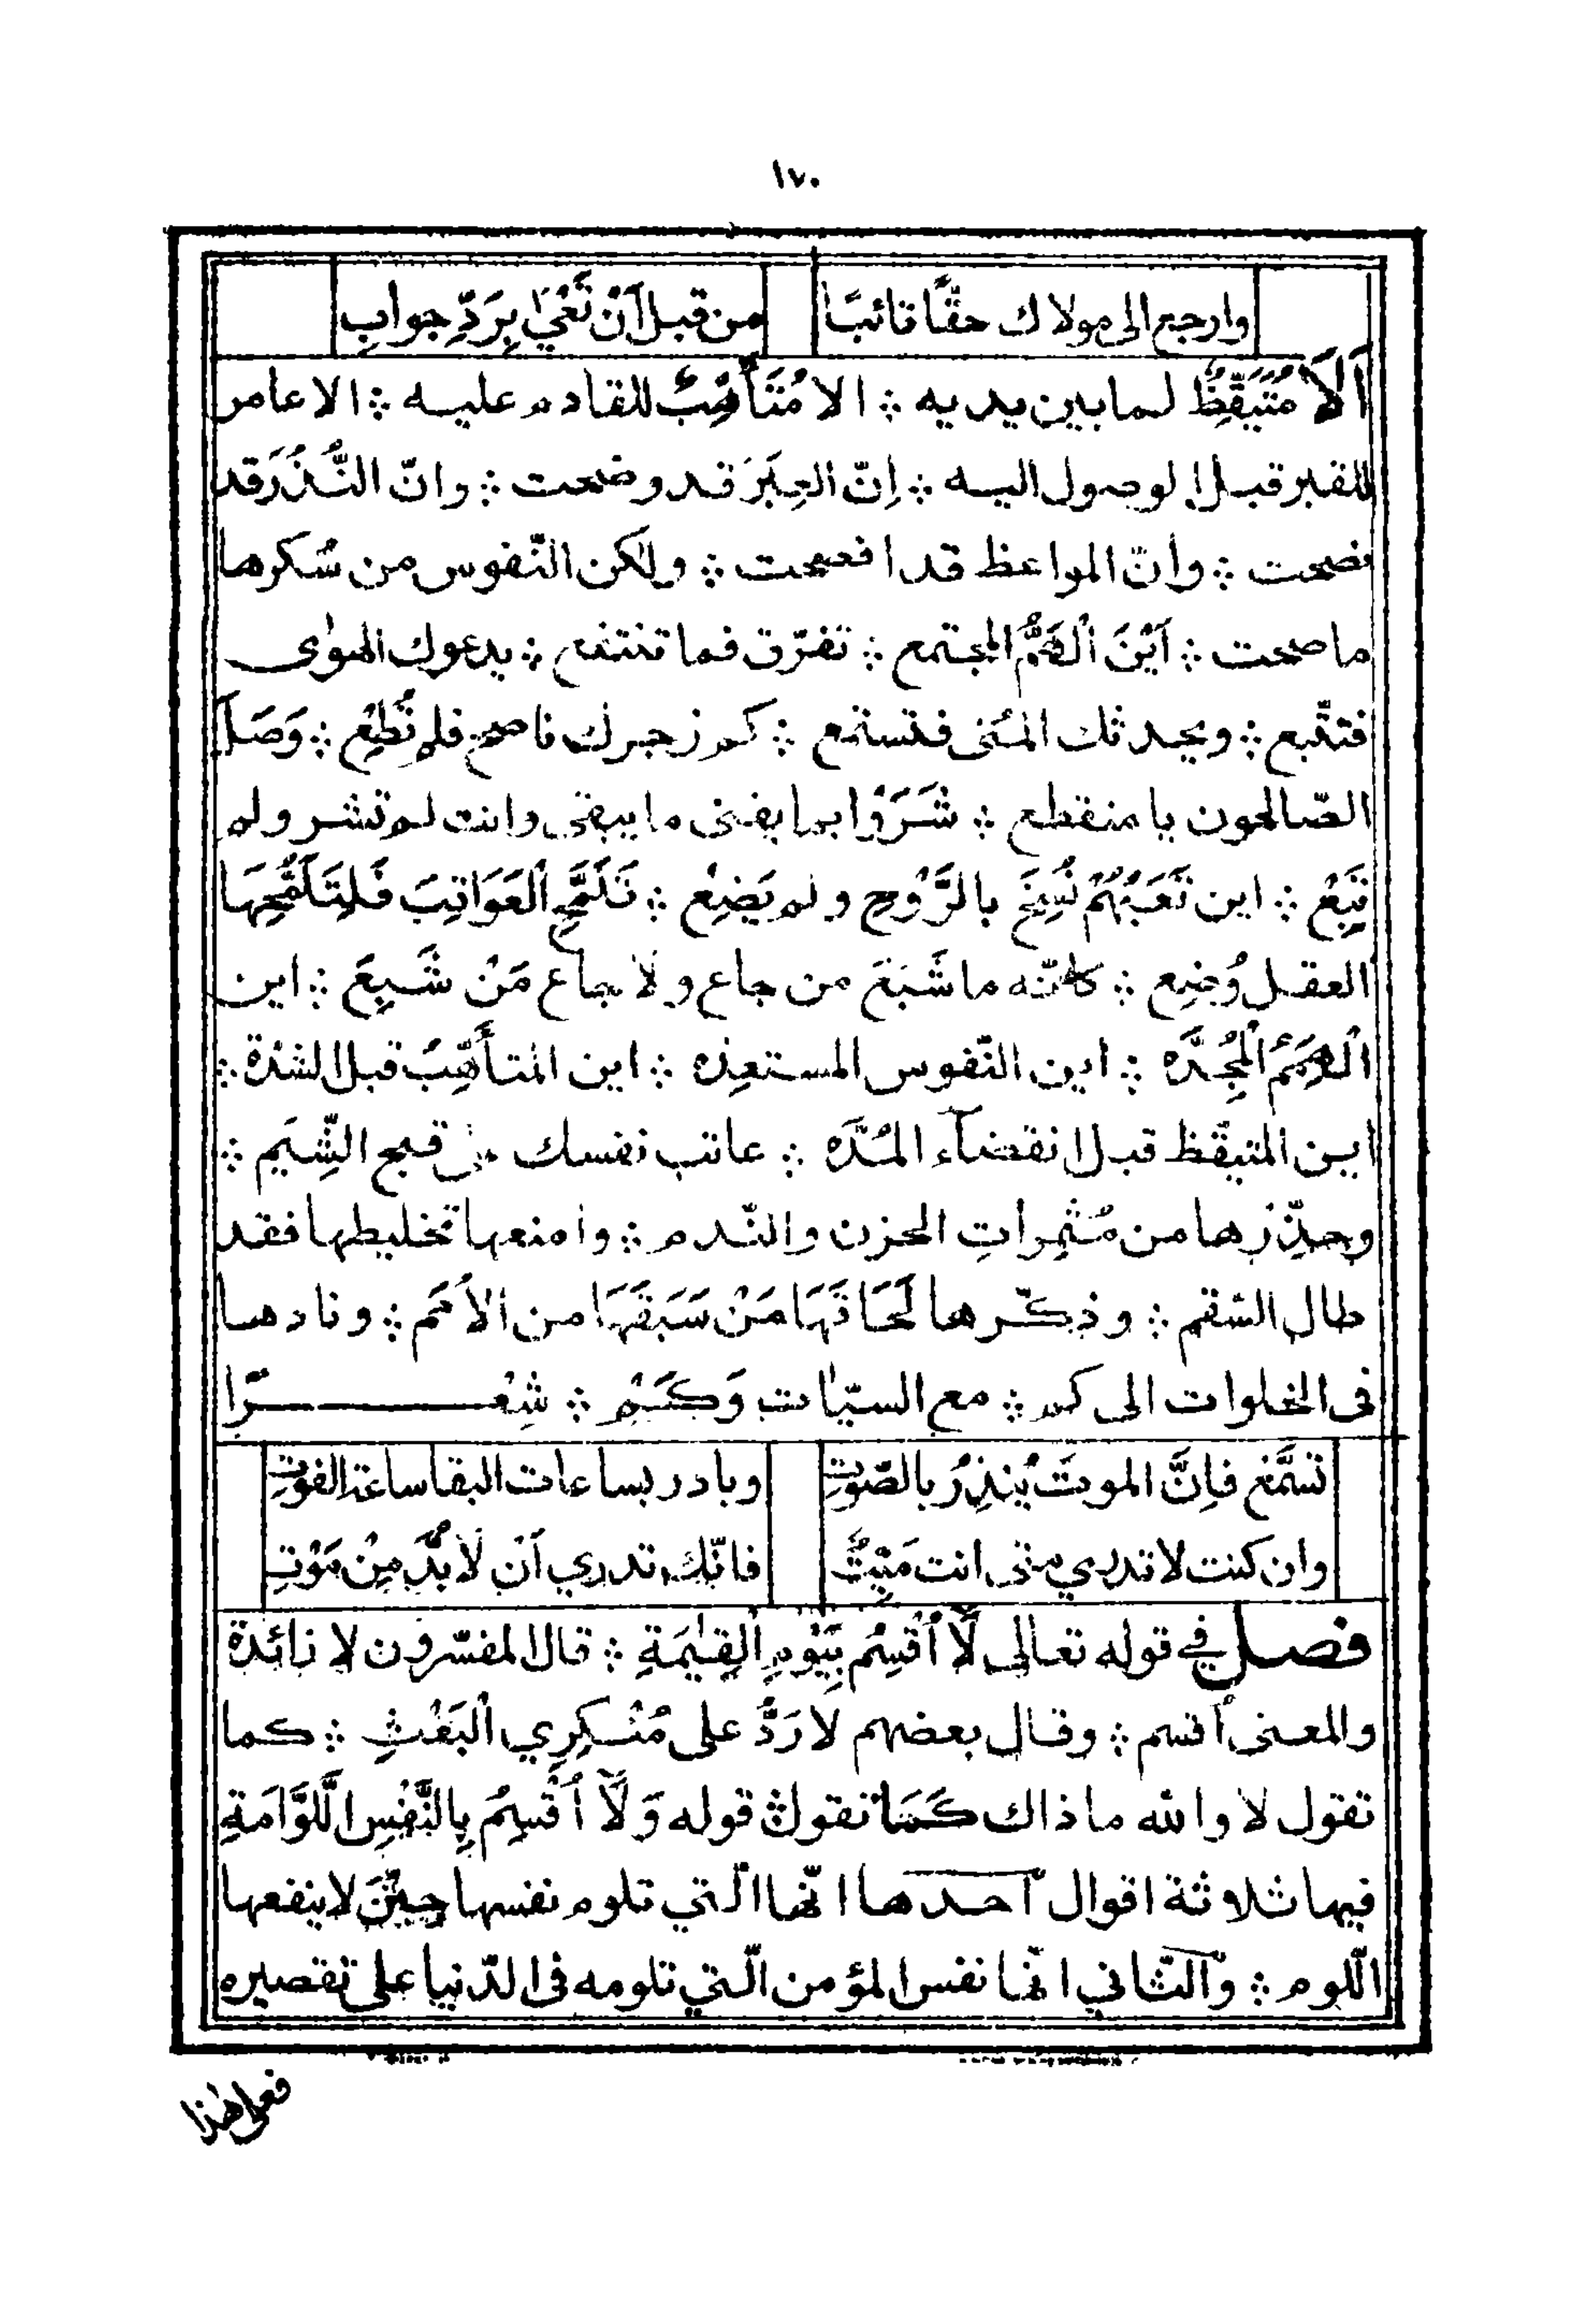 ١٧٠
وارجع الى مولاك حقًّا تائبًا من قبل اَنْ تَعْيٰ بِرَدِّ جوابِ
اَلَا مُتَيَقِّظٌ لما بين يديه ؞ الا مُتَأَهِّبٌ للقادم عليه ؞ الا عامر
للقبر قبل الوصول اليه ؞ اِنّ العِبَرَ قد وضحت ؞ وانّ النُّذُرَ قد
نصحت ؞ وانّ المواعظ قد افصحت ؞ ولٰكن النّفوس من سُكرها
ما صحت ؞ اَيْنَ اَلْهَمُّ المجتمع ؞ تفرّق فما تنتفع ؞ يدعوك الهوٰى
فتتّبع ؞ ويحدثك المُنى فتستمع ؞ كم زجرك ناصح فلم تُطِعْ ؞ وَصَلَ
الصّالحون يا منقطع ؞ شَرَوْا بما يفنى ما يبقى وانت لم تشر ولم
تَبِعْ ؞ اين تَعَبُهُمْ نُسِخَ بالرَّوْحِ ولم يَضِعْ ؞ تَلَمَّحِ الْعَوَاقِبَ فَلِتَلَمُّحِهَا
العقل وُضِع ؞ كانّه ما شَبَعَ من جاع ولا جاع مَنْ شَبِعَ ؞ اين
اَلْهِمَمُ الْمُجِدَّه ؞ اين النّفوس المستعدّه ؞ اين المتأَهِّبُ قبل الشدّة ؞
اين المتيقّظ قبل انقضآء المُدَّه ؞ عاتب نفسك على قبح الشِّيَم ؞
وحذّرها من مُثمِراتِ الحزن والنّدم ؞ وامنعها تخليطها فقد
طال السّقم ؞ وذكّرها لَحَاقَهَا مَنْ سَبَقَهَا من الأُمَم ؞ ونادها
فى الخلوات الى كم ؞ مع السيّاٰت وَكَمْ ؞ شِعْرًا
تسمَّع فاِنَّ الموتَ يُنذِرُ بالصّوتِ وبادر بساعات البقا ساعة الفوتِ
وان كنت لا تدري متى انت مَيِّتٌ فانّك تدري اَنْ لَا بُدَّ مِنْ مَوْتِ
فصل في قوله تعالى لَآ اُقْسِمُ بِيَوْمِ الْقِيٰمَةِ ؞ قال المفسّرون لا زائدة
والمعنى اُقسم ؞ وقال بعضهم لا رَدٌّ على مُنْكِرِي الْبَعْثِ ؞ كما
تقول لا والله ما ذاك كَمَا تقول قوله وَلَآ اُقْسِمُ بِالنَّفْسِ اللَّوَّامَةِ
فيها ثلاثة اقوال احدها انّها الّتي تلوم نفسها حِيْنَ لا ينفعها
اللّوم ؞ والثّاني انّها نفس المؤمن الّتي تلومه فى الدّنيا على تقصيره
فعلى هذا